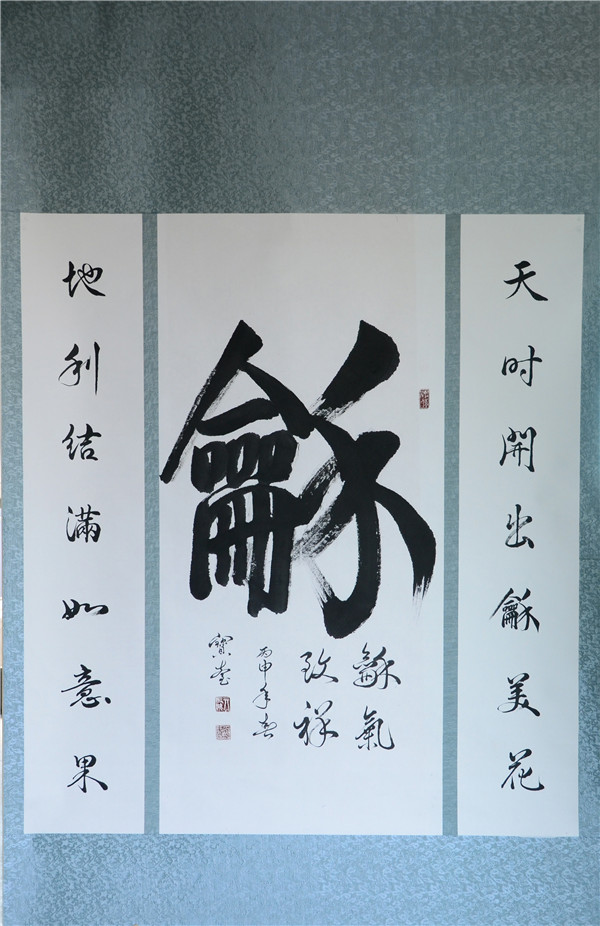 天时開出龢美花
龢
龢氣
致祥
丙申年春
寶
地利結滿如意果